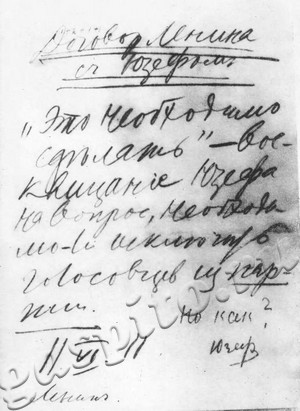 Договор Ленина
съ Юзефом.
„Это необходимо
сдѣлать" – вос-
клицаніе Юзефа
на вопрос, необходи
мо-ли исключить
голосовцев из пар-
тии.
Но как?
11 VI 11
Юзеф
Ленин.